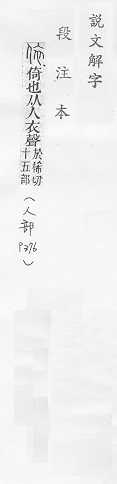 說文解字
段注本
依 倚也从人衣聲 於稀切 十五部 (人部 P376)